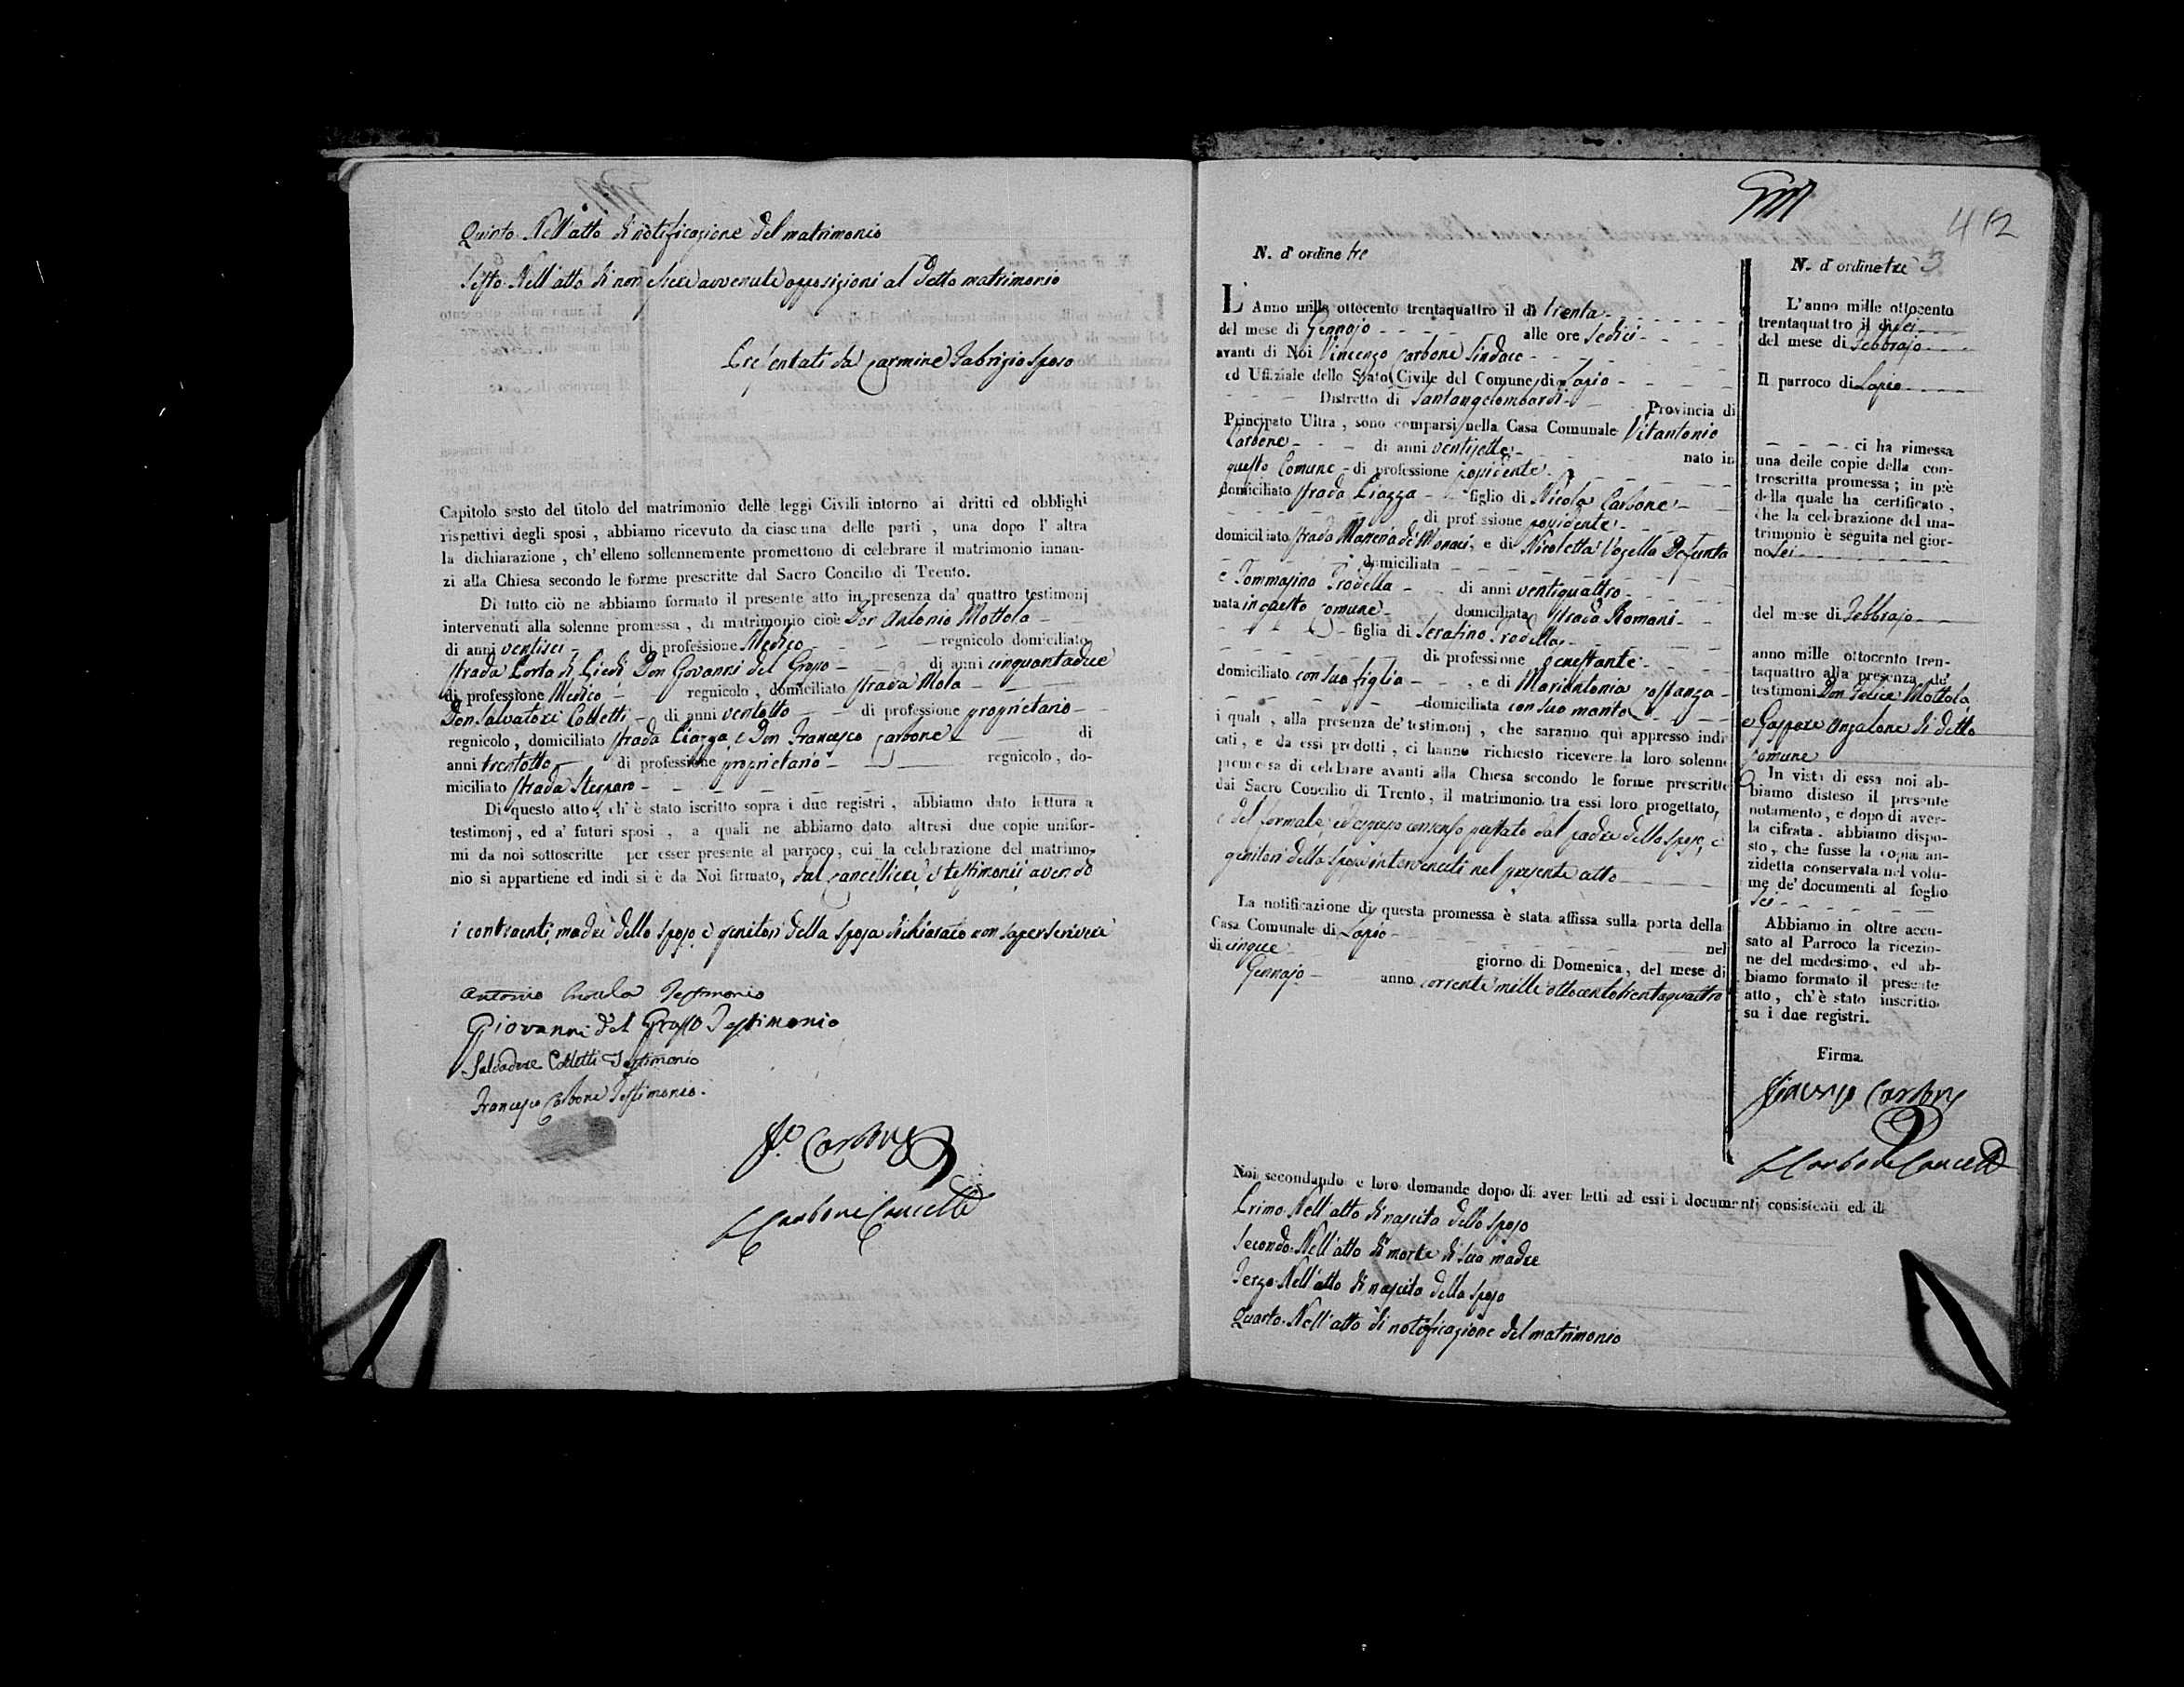 Quinto Nell'atto di notificazione del matrimonio
Sesto Nell'atto di non essere avvenute opposizioni al detto matrimonio
Presentati da Carmine Fabrizio sposo
Capitolo sesto del titolo del matrimonio delle leggi Civili intorno ai dritti ed obblighi
rispettivi degli sposi , abbiamo ricevuto da ciascuna delle parti , una dopo l' altra
la dichiarazione , ch' elleno sollennemente promettono di celebrare il matrimonio innan-
zi alla Chiesa secondo le forme prescritte dal Sacro Concilio di Trento.
Di tutto ciò ne abbiamo formato il presente atto in presenza da' quattro testimonj
intervenuti alla solenne promessa , di matrimonio cioè Don Antonio Mottola
di anni ventisei di professione Medico regnicolo domiciliato
strada Porta di Piedi Don Giovanni del Grosso di anni cinquantadue
di professione Medico regnicolo , domiciliato strada Mola
Don Salvatore Colletti di anni ventotto di professione proprietario
regnicolo , domiciliato strada Piazza e Don Francesco Carbone di
anni trentotto di professione proprietario regnicolo , do-
miciliato strada
Di questo atto , ch' è stato iscritto sopra i due registri , abbiamo dato lettura a
testimonj , ed a' futuri sposi , a quali ne abbiamo dato altresi due copie unifor-
mi da noi sottoscritte per esser presente al parroco, cui la celebrazione del matrimo-
nio si appartiene ed indi si è da Noi firmato, dal Cancelliere, e testimonii avendo
i contraenti, madre dello sposo e genitori della sposa dichiarato non saper scrivere
Antonio Testimonio
Giovanni del Grosso Testimonio
Salvadore Colletti Testimonio
Francesco Carbone Testimonio.
Carbone
Carbone Cancell
412
N. d' ordine tre
L' Anno mille ottocento trentaquattro il dì trenta
del mese di Gennajo alle ore sedici
avanti di Noi Vincenzo Carbone Sindaco
ed Uffiziale dello Stato Civile del Comune di Lapio
Distretto di Santangelombardi Provincia di
Principato Ultra , sono comparsi nella Casa Comunale Vitantonio
Carbone di anni ventisette nato in
questo Comune di professione possidente
domiciliato strada Piazza figlio di Nicola Carbone
di professione possidente
domiciliato strada de Monaci, e di Nicoletta Defunta
domiciliata
e Tommasina Trodella di anni ventiquattro
nata in questo Comune domiciliata strada Romani
figlia di Serafino Trodella
di professione
domiciliato con sua figlia , e di Mariantonia Costanza
domiciliata con suo marito
i quali , alla presenza de' testimonj , che saranno quì appresso indi-
cati , e da essi prodotti , ci hanno richiesto ricevere la loro solenne
promessa di celebrare avanti alla Chiesa secondo le forme prescritte
dal Sacro Concilio di Trento, il matrimonio tra essi loro progettato,
e del formale, ed espresso consenso prestato dal padre dello sposo, e
genitori della sposa intervenuti nel presente atto
La notificazione di questa promessa è stata affissa sulla porta della
Casa Comunale di Lapio nel
di cinque giorno di Domenica, del mese di
Gennajo anno corrente mille ottocento trentaquattro
Noi secondando e loro domande dopo di aver letti ad essi i documenti consistenti ed il
Primo Nell'atto di nascita dello sposo
Secondo Nell'atto di morte di sua madre
Terzo Nell'atto di nascita della sposa
Quarto Nell'atto di notificazione del matrimonio
N. d' ordine tre 3
L' anno mille ottocento
trentaquattro il dì sei
del mese di Febbrajo
Il parroco di Lapio
ci ha rimessa
una delle copie della con-
troscritta promessa ; in piè
della quale ha certificato ,
che la celebrazione del ma-
trimonio è seguita nel gior-
no sei
del mese di Febbrajo
anno mille ottocento tren-
taquattro alla presenza de'
testimoni Don Felice Mottola
e Gaspare Anzalone di detto
Comune
In vista di essa noi ab-
biamo disteso il presente
notamento , e dopo di aver-
la cifrata . abbiamo dispo-
sto , che fusse la copia an-
zidetta conservata nel volu-
me de' documenti al foglio
sei
Abbiamo in oltre accu-
sato al Parroco la ricezio-
ne del medesimo , ed ab-
biamo formato il presente
atto , ch' è stato inscritto
su i due registri.
Firma
Vincenzo Carbone
Carbone Cancell